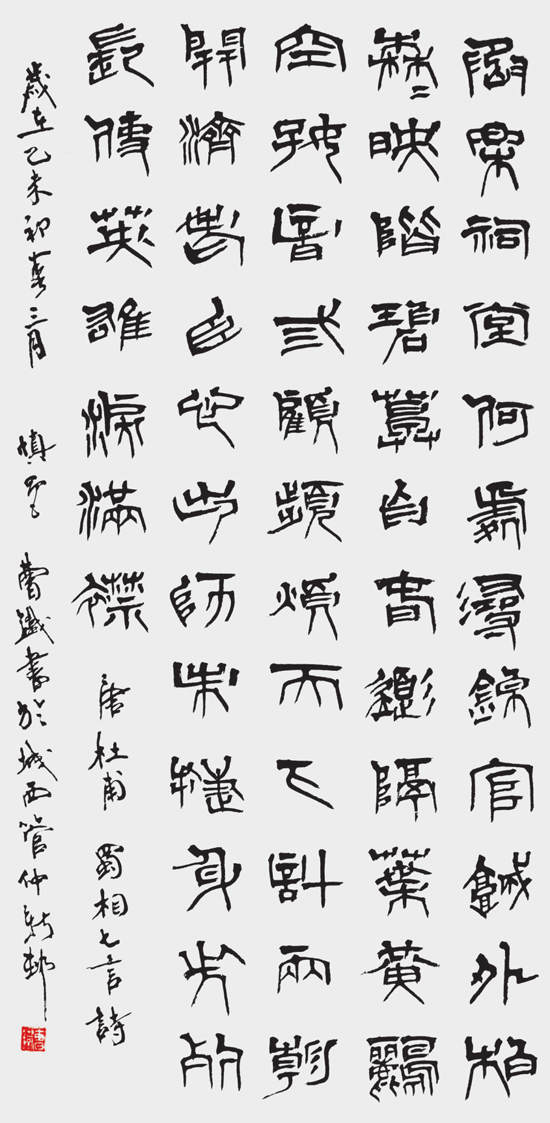 丞相祠堂何處尋錦官城外柏
森〻映階碧草自春色隔葉黄鸝
空好音三顧頻煩天下計兩朝
開濟老臣心出師未捷身先死
長使英雄淚滿襟 唐杜甫 蜀相七言詩
歲在乙未初春三月 慎 書於城西管仲新邨